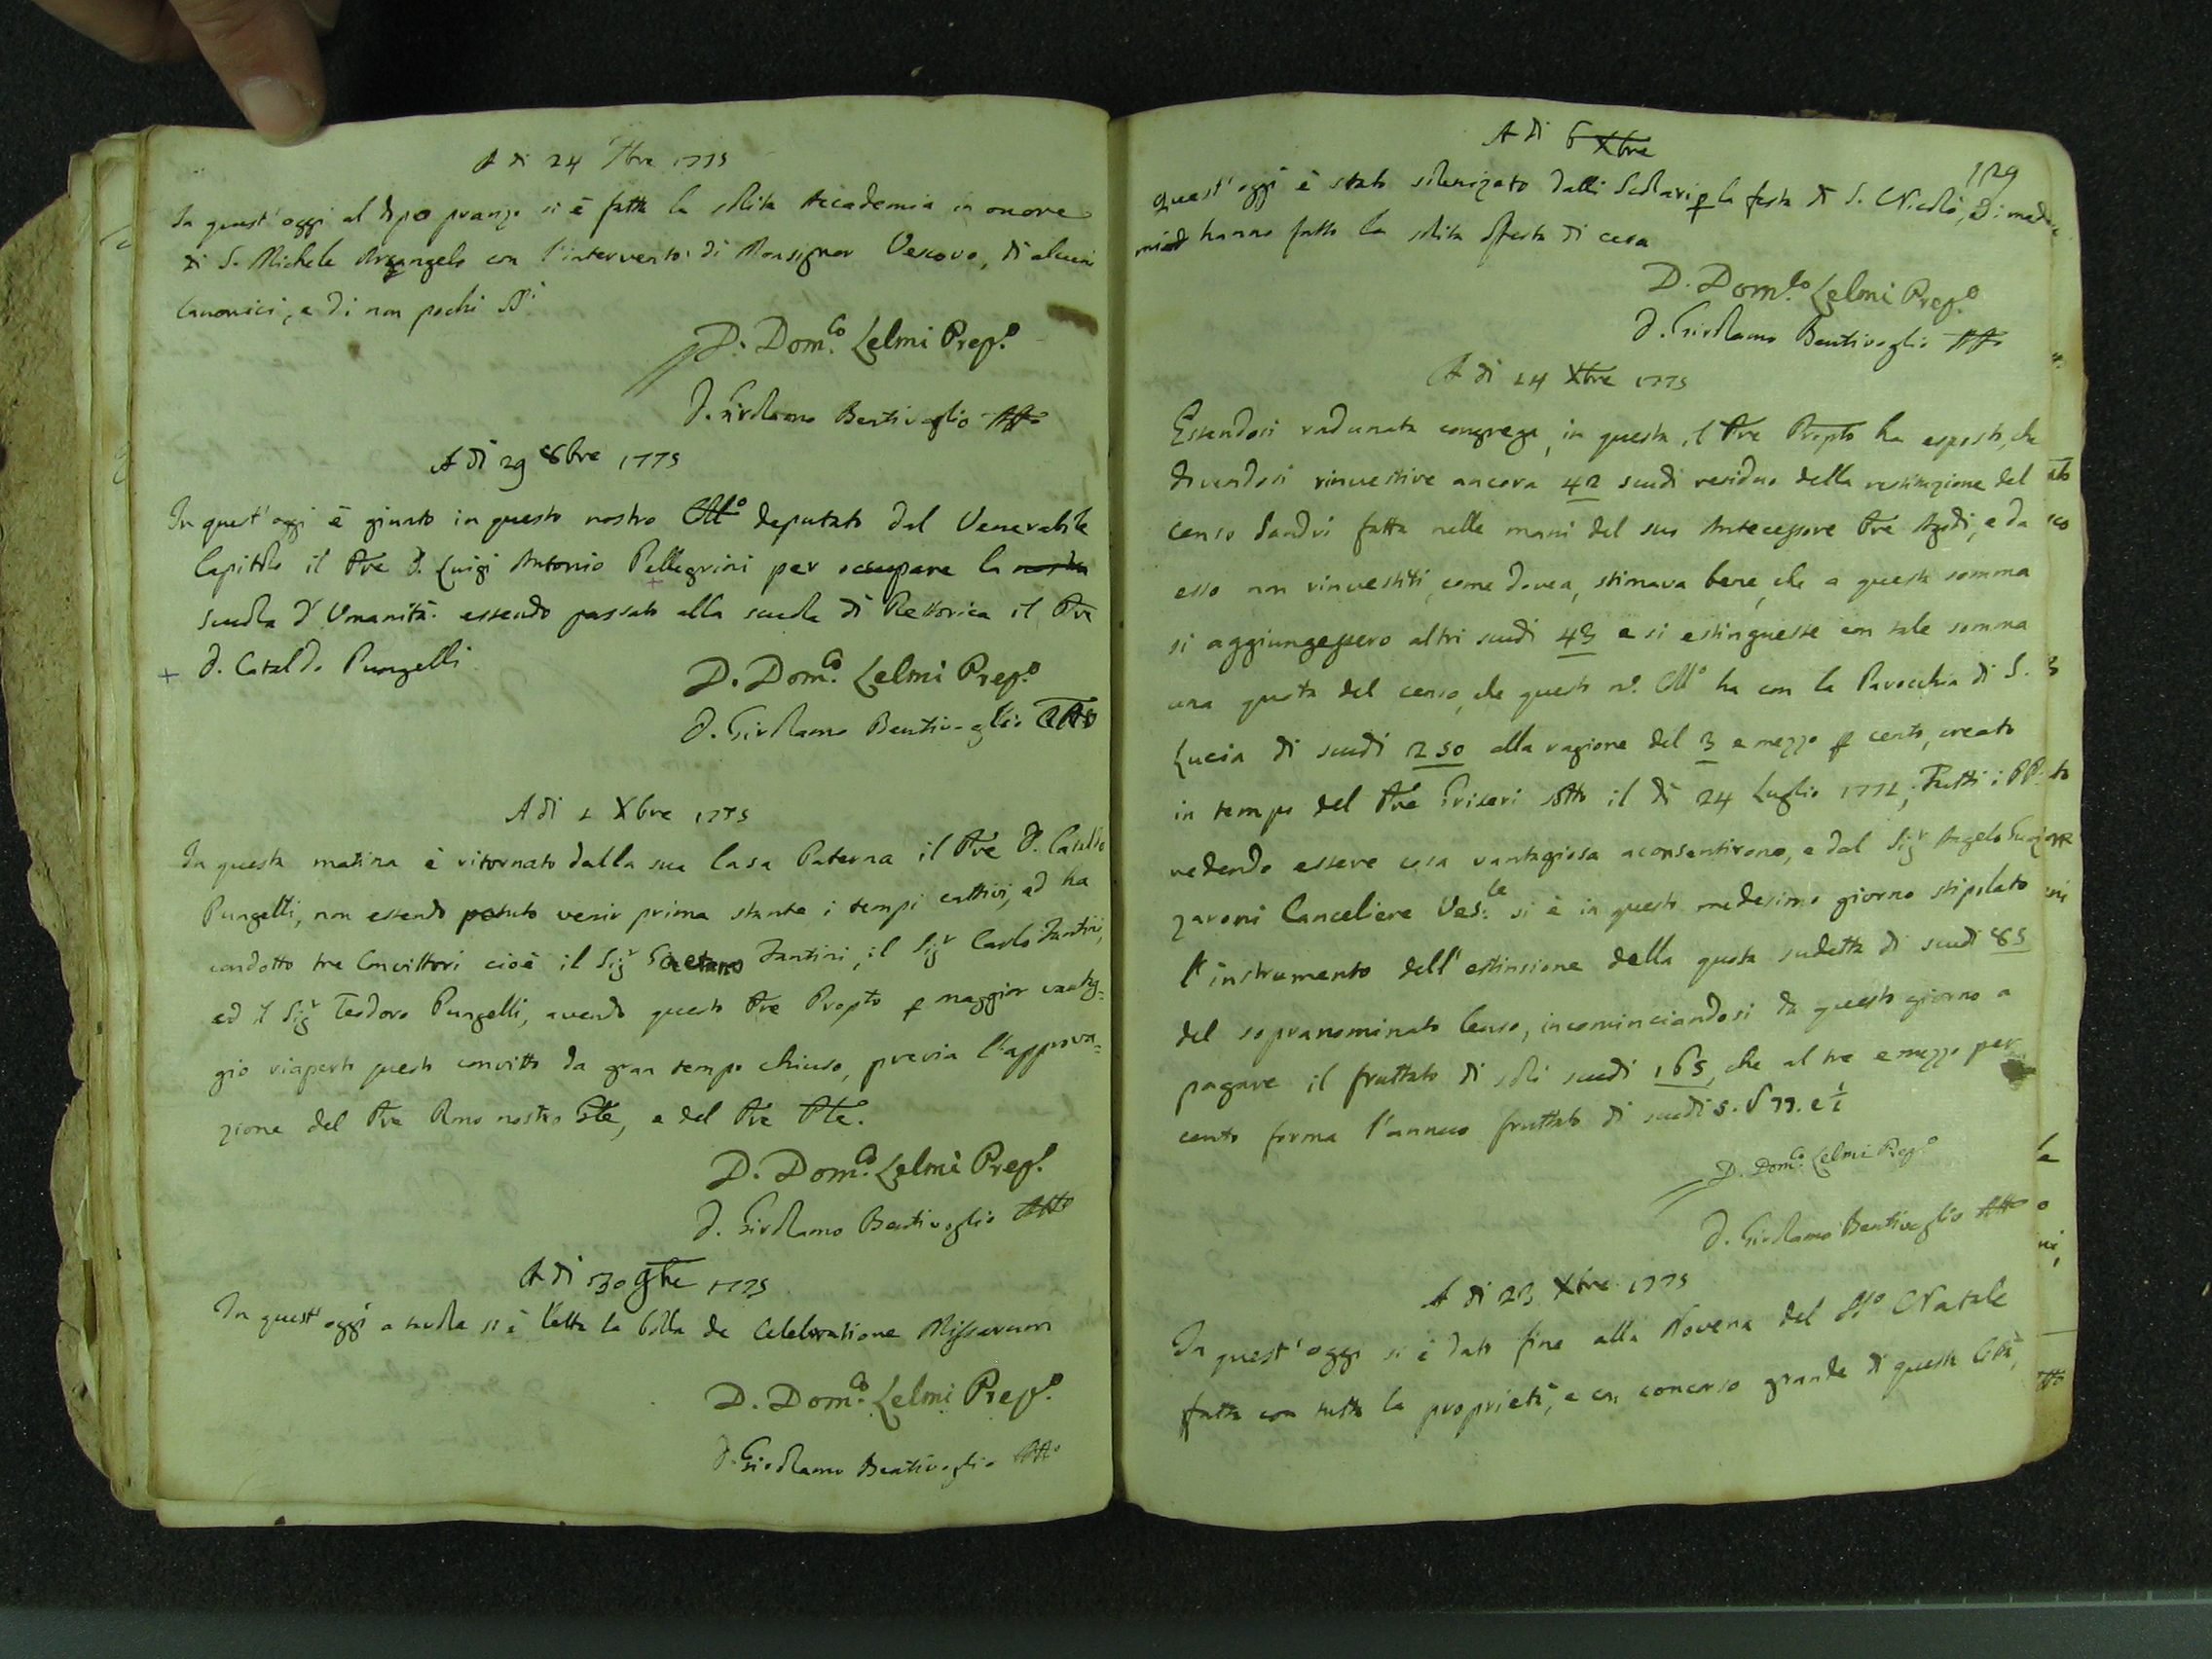 A di 24 7bre 1775
In quest'oggi al dopo pranzo si è fatta la solita Accademia in onore
di S. Michele Arcangelo con l'intervento di Monsignor Vescovo, di alcuni
Canonici, e di non pochi
D. Dom.co Lelmi Prep.o
D. Girolamo Bentivoglio Atto
A di 29 8bre 1775
In quest'oggi è giunto in questo nostro Coll.o deputato dal Venerabile
Capitolo il Pre D. Luigi Antonio Pellegrini per occupare la nostra
scuola d'Umanità essendo passato alla scuola di Rettorica il Pre
+ D. Cataldo Pungelli
D. Dom.co Lelmi Prep.o
D. Girolamo Bentivoglio Atto
A di 2 Xbre 1775
In questa matina è ritornato dalla sua Casa Paterna il Pre D. Cataldo
Pungelli, non essendo potuto venir prima stante i tempi cattivi, ed ha
condotto tre Convittori cioè il Sigr Gaetano Fantini, il Sigr Carlo Fantini,
ed il Sigr Teodoro Pungelli, avendo questo Pre Propto p maggior vantag=
gio riaperto questo convitto da gran tempo chiuso, previa l'approva=
zione del Pre Rmo nostro Gle, e del Pre Ple.
D. Dom.co Lelmi Prep.o
D. Girolamo Bentivoglio Atto
A di 30 9bre 1775
In quest'oggi a tavola si è letta la bolla de Celebratione Missarum
D. Dom.co Lelmi Prep.o
D. Girolamo Bentivoglio Atto
129
A di 6 Xbre
Quest'oggi è stato solenizato dalli Scolari p la festa di S. Nicolò,
hanno fatto la solita offerta di cera
D. Dom.co Lelmi Prep.o
D. Girolamo Bentivoglio Atto
A di 14 Xbre 1775
Essendosi radunata congrega, in questa il Pre Propto ha esposto, che
dovendosi rinvestire ancora 42 scudi residuo della restituzione del
censo Sandri fatta nelle mani del suo Antecessore Pre Agidi, e da
esso non rinvestiti, come dovea, stimava bene, che a questa somma
si aggiungessero altri scudi 43 e si estinguesse con tale somma
una quota del censo, che questo no. Coll.o ha con la Parocchia di S.
Lucia di scudi 250 alla ragione del 3 e mezzo p cento, creato
in tempo del Pre Griseri sotto il di 24 Luglio 1772; Tutti i PP.
vedendo essere cosa vantagiosa aconsentirono, e dal Sigr Angelo
zaroni Canceliere Ves.le si è in questo medesimo giorno stipolato
l'instrumento dell'estinsione della quota sudetta di scudi 85
del sopranominato Censo, incominciandosi da questo giorno a
pagare il fruttato di soli scudi 165, che al tre e mezzo per
cento forma l'annuo fruttato di scudi 5. 677. e ½
D. Dom.co Lelmi Prep.o
D. Girolamo Bentivoglio Atto
A di 23 Xbre 1775
In quest'oggi si è dato fine alla Novena del SS.o Natale
fatta con tutta la proprietà, e con concorso grande di questa Città,